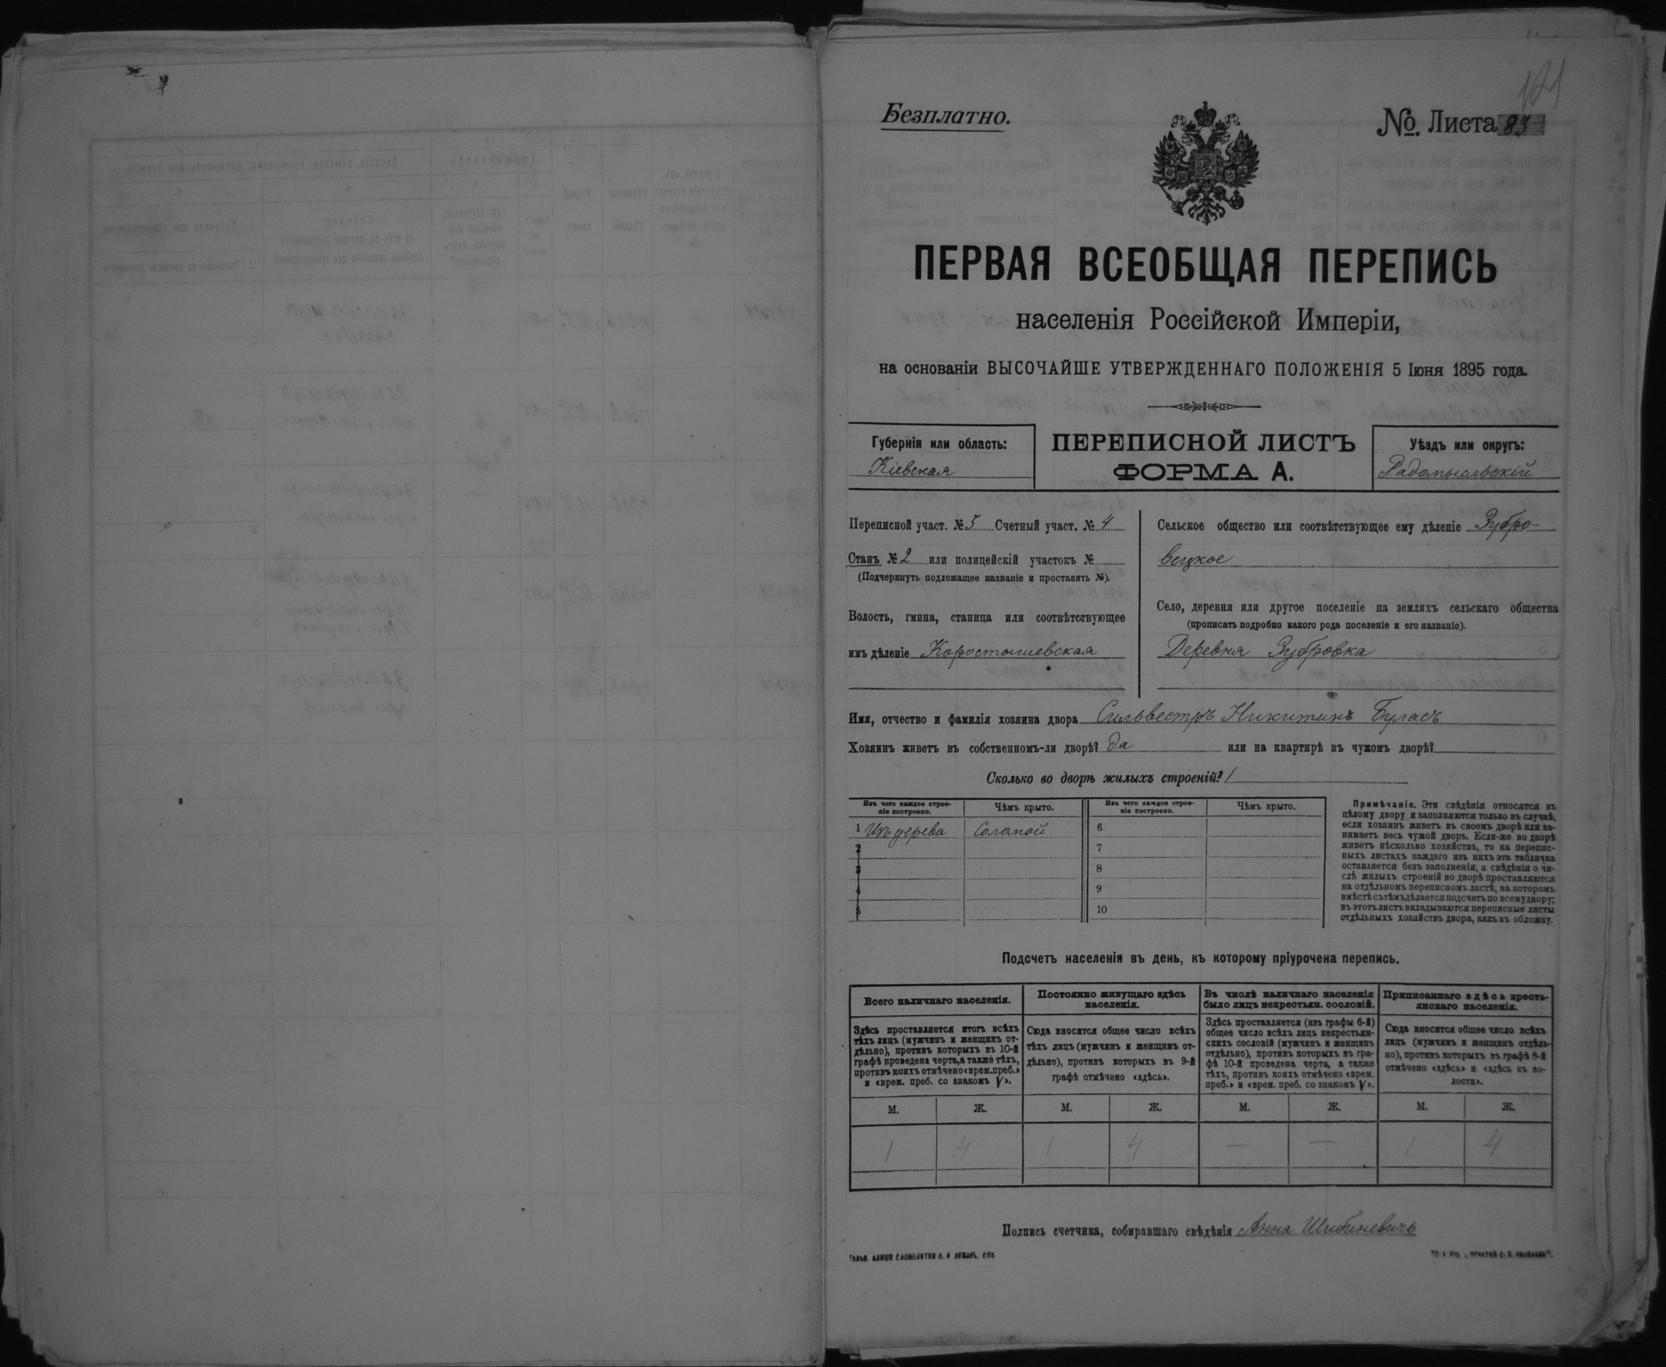 Безплатно.
№ Листа 83
121
ПЕРВАЯ ВСЕОБЩАЯ ПЕРЕПИСЬ
населенія Россійской Имперіи,
на основаніи ВЫСОЧАЙШЕ УТВЕРЖДЕННАГО ПОЛОЖЕНІЯ 5 Іюня 1895 года.
Губернія или область:
Кіевская
ПЕРЕПИСНОЙ ЛИСТЪ
ФОРМА А.
Уѣздъ или округъ:
Радомысльскій
Переписной участ. № 5 Счетный участ. № 4
Станъ № 2 или полицейскій участокъ №
(Подчеркнуть подлежащее названіе и проставить №).
Волость, гмина, станица или соотвѣтствующее
имъ дѣленіе Коростышевская
Сельское общество или соотвѣтствующее ему дѣленіе Зубро-
вецкое
Село, деревня или другое поселеніе на земляхъ сельскаго общества
(прописать подробно какого рода поселеніе и его названіе).
Деревня Зубровка
Имя, отчество и фамилія хозяина двора Сильвестръ Никитинъ Буласъ
Хозяинъ живетъ въ собственномъ-ли дворѣ? Да или на квартирѣ въ чужомъ дворѣ?
Сколько во дворѣ жилыхъ строеній? 1
Изъ чего каждое строе-
ніе построено.
Чѣмъ крыто.
Изъ чего каждое строе-
ніе построено.
Чѣмъ крыто.
1 Изъ дерева Соломой
2
3
4
5
6
7
8
9
10
Примѣчаніе. Эти свѣдѣнія относятся къ
цѣлому двору и заполняются только въ случаѣ,
если хозяинъ живетъ въ своемъ дворѣ или за-
нимаетъ весь чужой дворъ. Если-же во дворѣ
живетъ нѣсколько хозяйствъ, то на перепис-
ныхъ листахъ каждаго изъ нихъ эта табличка
оставляется безъ заполненія, а свѣдѣнія о чи-
слѣ жилыхъ строеній во дворѣ проставляются
на отдѣльномъ переписномъ листѣ, на которомъ
вмѣстѣ съ тѣмъ дѣлается подсчетъ по всему двору;
въ этотъ листъ вкладываются переписные листы
отдѣльныхъ хозяйствъ двора, какъ въ обложку.
Подсчетъ населенія въ день, къ которому пріурочена перепись.
Всего наличнаго населенія.
Здѣсь проставляется итогъ всѣхъ
тѣхъ лицъ (мужчинъ и женщинъ от-
дѣльно), противъ которыхъ въ 10-й
графѣ проведена черта, а также тѣхъ,
противъ коихъ отмѣчено «врем. преб.»
и «врем. преб. со знакомъ V».
Постоянно живущаго здѣсь
населенія.
Сюда вносится общее число всѣхъ
тѣхъ лицъ (мужчинъ и женщинъ от-
дѣльно), противъ которыхъ въ 9-й
графѣ отмѣчено «здѣсь».
Въ числѣ наличнаго населенія
было лицъ некрестьян. сословій.
Здѣсь проставляется (изъ графы 6-й)
общее число всѣхъ лицъ некрестьян-
скихъ сословій (мужчинъ и женщинъ
отдѣльно), противъ которыхъ въ гра-
фѣ 10-й проведена черта, а также
тѣхъ, противъ коихъ отмѣчено «врем.
преб.» и «врем. преб. со знакомъ V».
Приписаннаго здѣсь кресть-
янскаго населенія.
Сюда вносится общее число всѣхъ
лицъ (мужчинъ и женщинъ отдѣль-
но), противъ которыхъ въ графѣ 8-й
отмѣчено «здѣсь» и «здѣсь къ во-
лости».
М. Ж. М. Ж. М. Ж. М. Ж.
1 4 1 4 — — 1 4
Подпись счетчика, собиравшаго свѣдѣнія Анна